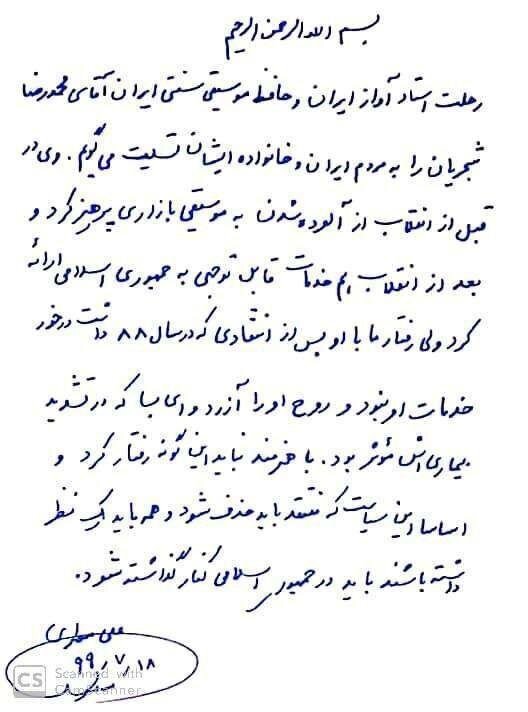 بسم الله الرحمن الرحیم
رحلت استاد آواز ایران و حافظ موسیقی سنتی ایران آقای محمدرضا
شجریان را به مردم ایران و خانواده ایشان تسلیت می‌گویم. وی در
قبل از انقلاب از آلوده شدن به موسیقی بازاری پرهیز کرد و
بعد از انقلاب هم خدمات قابل توجهی به جمهوری اسلامی ارائه
کرد ولی رفتار ما با او پس از انتقادی که در سال ۸۸ داشت درخور
خدمات او نبود و روح او را آزرد و ای بسا که در تشدید
بیماری‌اش مؤثر بود. با هنرمند نباید این گونه رفتار کرد و
اساسا این سیاست که منتقد باید حذف شود و همه باید یک نظر
داشته باشند باید در جمهوری اسلامی کنار گذاشته شود.
علی مطهری
۹۹/۷/۱۸
CS Scanned with
CamScanner